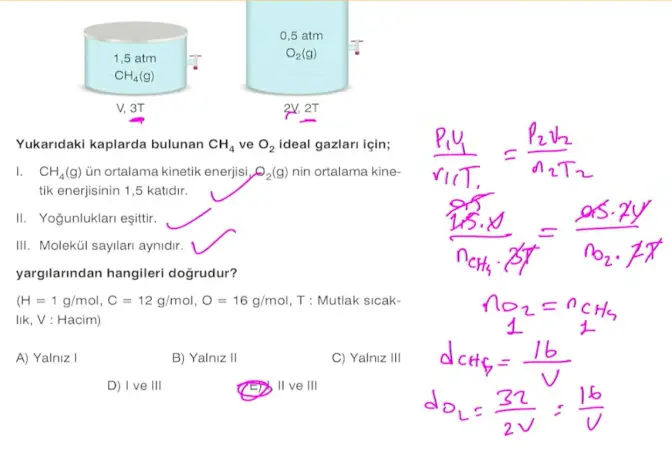 0,5 atm
O₂(g)
1,5 atm
CH₄(g)
V, 3T
2V, 2T
Yukarıdaki kaplarda bulunan CH₄ ve O₂ ideal gazları için;
I. CH₄(g) ün ortalama kinetik enerjisi, O₂(g) nin ortalama kine-
tik enerjisinin 1,5 katıdır.
II. Yoğunlukları eşittir.
III. Molekül sayıları aynıdır.
yargılarından hangileri doğrudur?
(H = 1 g/mol, C = 12 g/mol, O = 16 g/mol, T : Mutlak sıcak-
lık, V : Hacim)
A) Yalnız I B) Yalnız II C) Yalnız III
D) I ve III E) I, II ve III
P₁V₁ = P₂V₂
n₁T₁ n₂T₂
0,5
1,5.V = 0,5.2V
nCH₄.3T nO₂.2T
nO₂ = nCH₄
1 1
dCH₄ = 16
V
dO₂ = 32 = 16
2V V